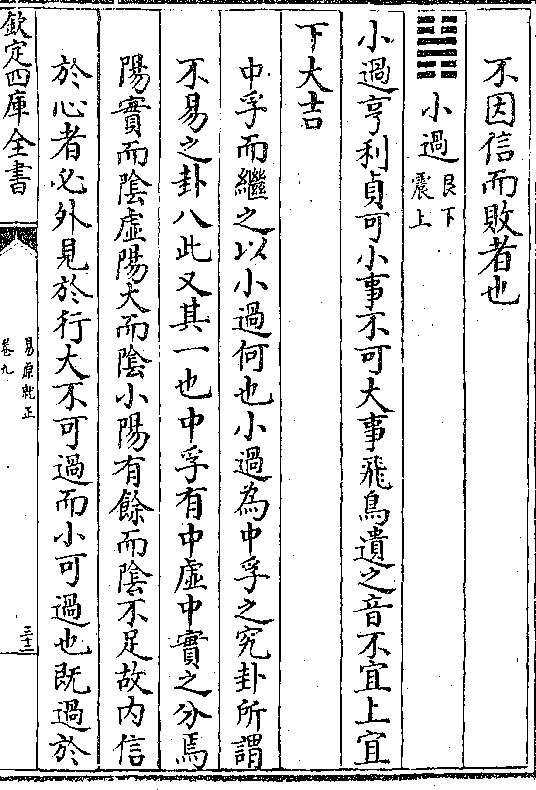 不因信而敗者也
䷽小過艮下震上
小過亨利貞可小事不可大事飛鳥遺之音不宜上宜
下大吉
中孚而繼之以小過何也小過為中孚之究卦所謂
不易之卦八此又其一也中孚有中虛中實之分焉
陽實而陰虛陽大而陰小陽有餘而陰不足故内信
於心者必外見於行大不可過而小可過也既過於
欽定四庫全書
易原就正
卷九
三十二